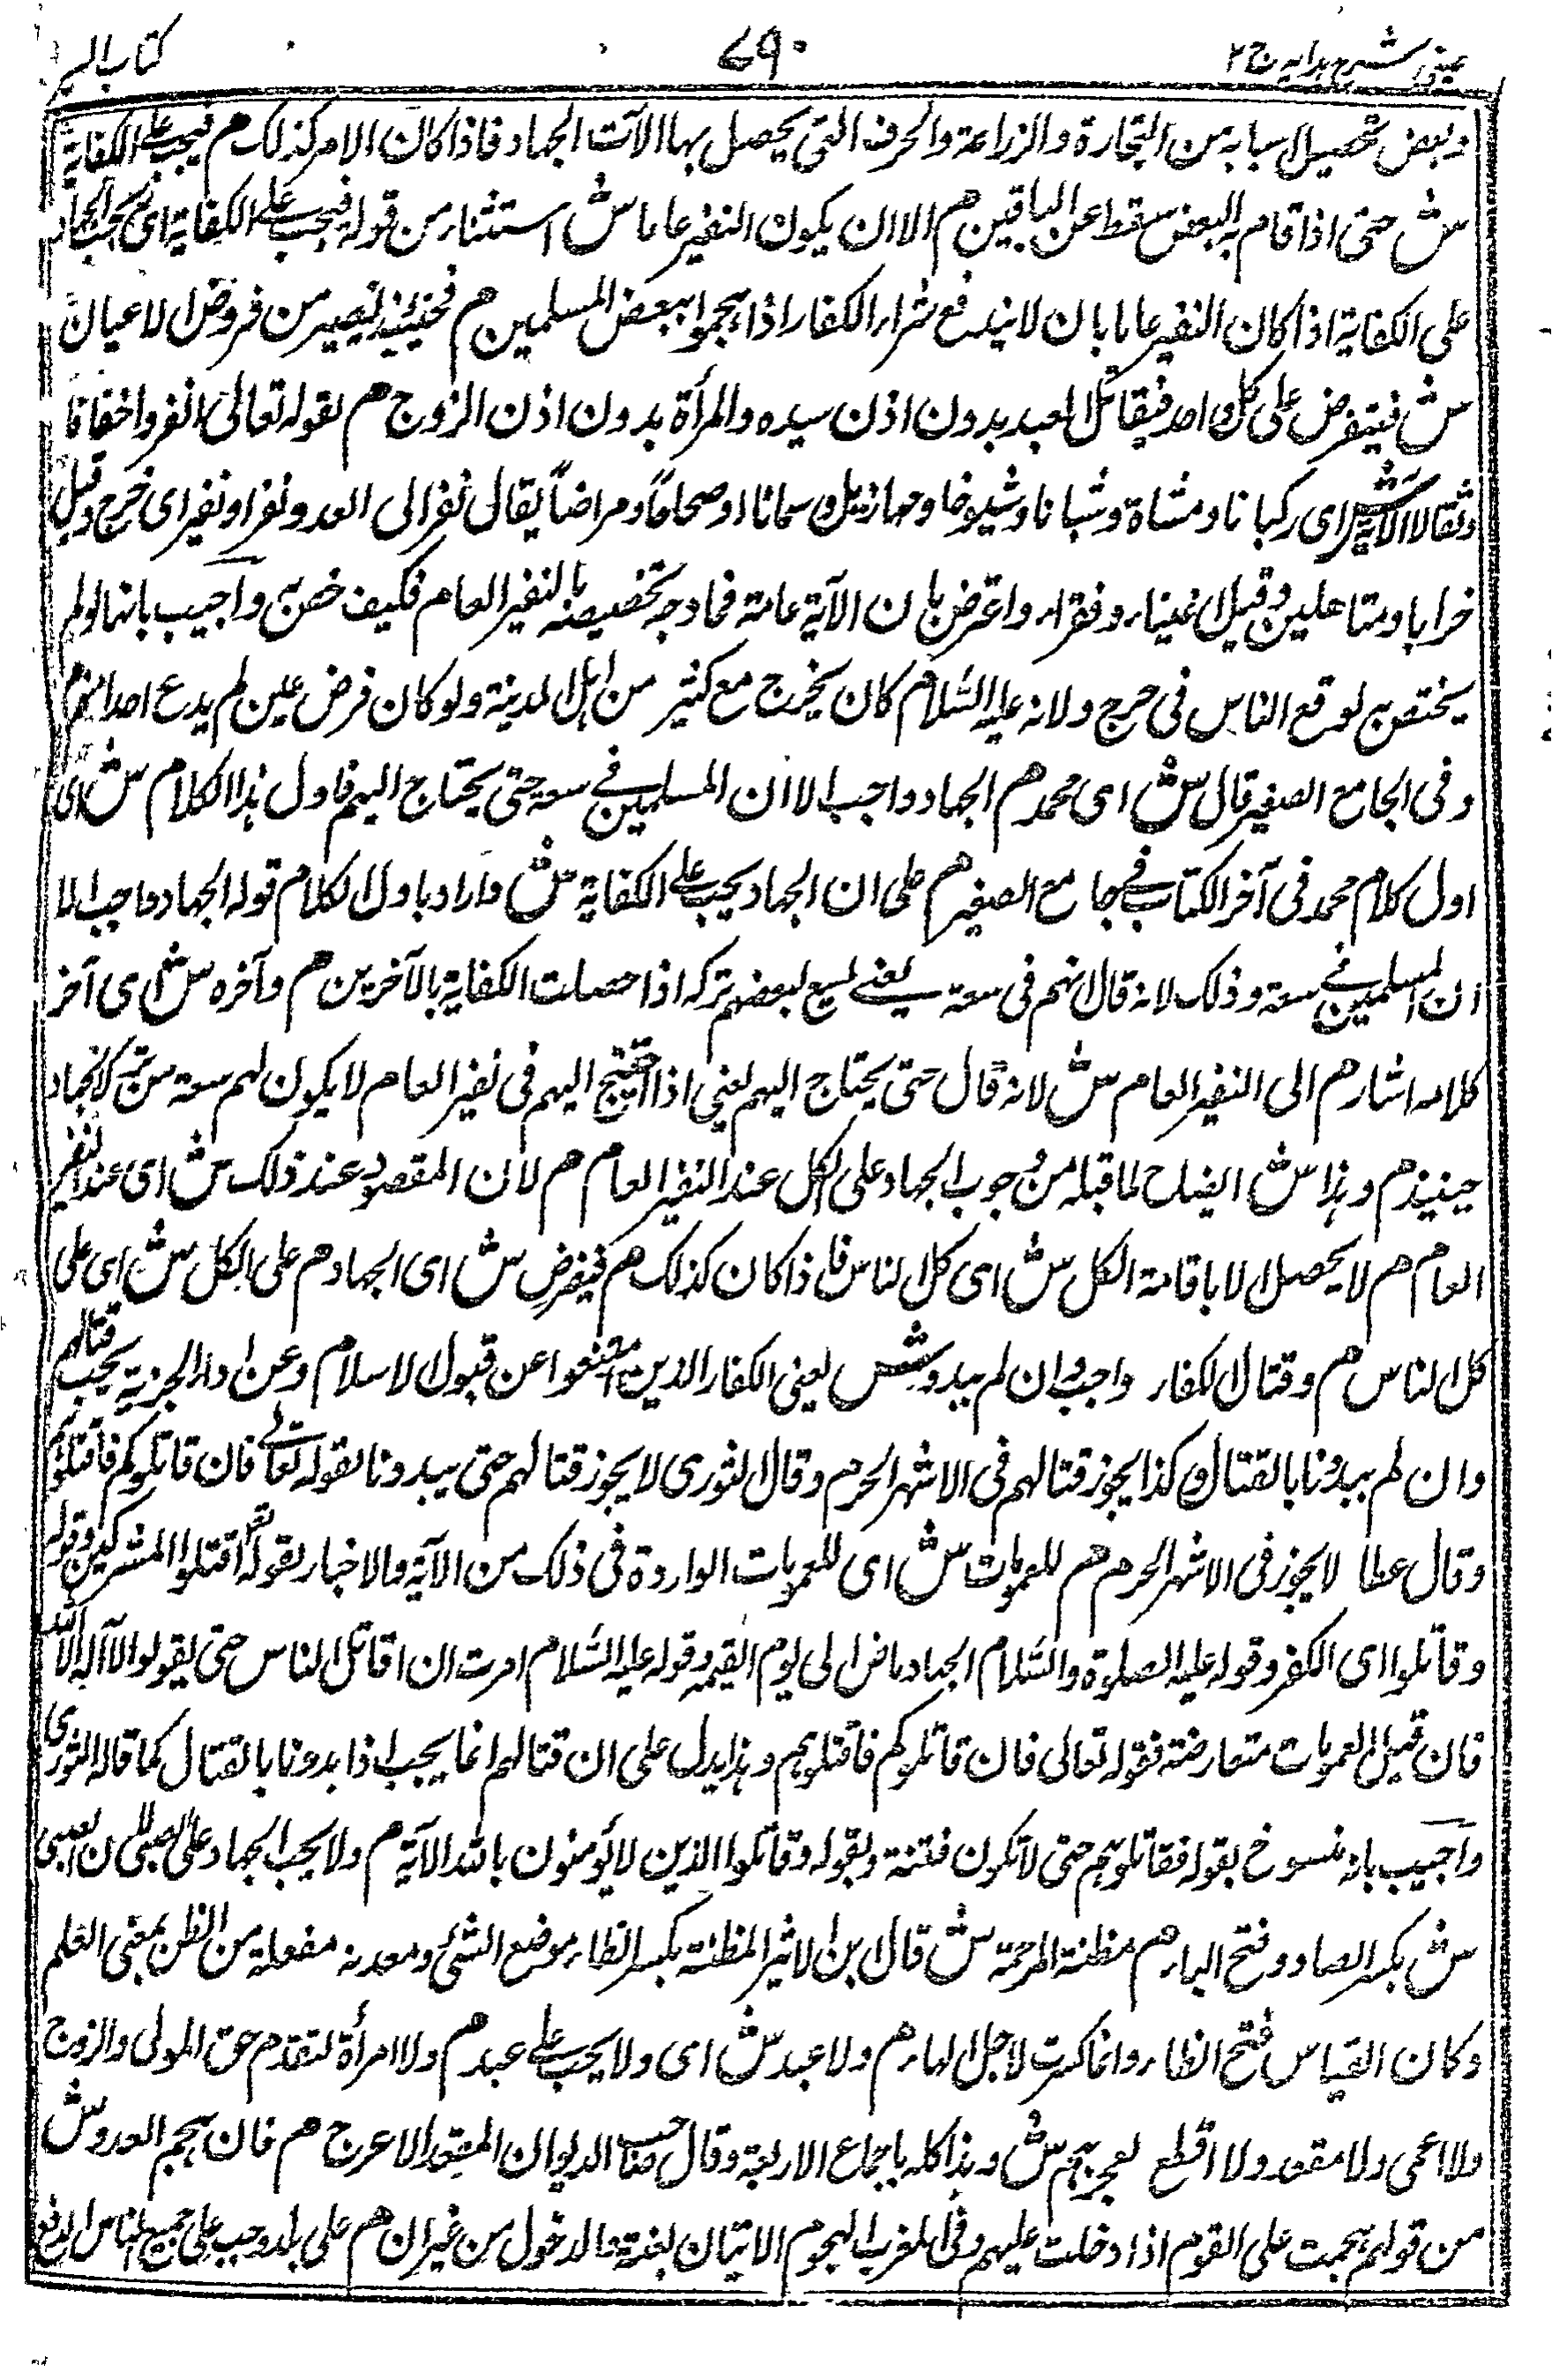 عینی شرح ہدایہ ج ۲
۷۹۰
کتاب السیر
وبعض تحصيل اسبابه من التجارة والزراعة والحرف التي يحصل بها الآت الجهاد فاذا كان الامر كذلك م فيجب على الكفاية
ش حتى اذا قام به البعض سقط عن الباقين م الا ان يكون النفير عاما ش استثناء من قوله فيجب على الكفاية اى يجب الجهاد
على الكفاية اذا كان النفير عاما بان لا يندفع شراء الكفار اذا هجموا ببعض المسلمين م فحينئذ يصير من فروض الاعيان
ش فيفرض على كل واحد فيقاتل العبد بدون اذن سيده والمرأة بدون اذن الزوج م لقوله تعالى انفروا خفافا
وثقالا الآية ش اى ركبانا ومشاة وشبانا وشيوخا ومهازيل وسمانا او صحاحا ومراضا يقال نفر الى العدو نفرا ونفيرا اى خرج وقيل
خرابا ومتاهلين وقيل اغنياء وفقراء واعترض بان الآية عامة فما وجه تخصيصه بالنفير العام فكيف خص به واجيب بانها لو لم
يختص به لوقع الناس في حرج ولانه عليه السلام كان يخرج مع كثير من اهل المدينة ولو كان فرض عين لم يدع احدا منهم م
وفى الجامع الصغير قال ش اى محمد م الجهاد واجب الا ان المسلمين في سعة حتى يحتاج اليهم فاول هذا الكلام ش اى
اول كلام محمد في آخر الكتاب في جامع الصغير م على ان الجهاد يجب على الكفاية ش واراد باول الكلام قوله الجهاد واجب الا
ان المسلمين في سعة وذلك لانه قال انهم في سعة يعنى يسع لبعضهم تركه اذا حصلت الكفاية بالآخرين م وآخره ش اى آخر
كلامه اشار م الى النفير العام ش لانه قال حتى يحتاج اليهم يعنى اذا احتيج اليهم في نفير العام لا يكون لهم سعة من ترك الجهاد
حينئذ م وهذا ش ايضاح لما قبله من وجوب الجهاد على الكل عند النفير العام م لان المقصود عند ذلك ش اى عند النفير
العام م لا يحصل الا باقامة الكل ش اى كل الناس فاذا كان كذلك م فيفرض ش اى الجهاد م على الكل ش اى على
كل الناس م وقتال الكفار واجب وان لم يبدوا ش يعنى الكفار الذين امتنعوا عن قبول الاسلام وعن اداء الجزية يجب قتالهم
وان لم يبدونا بالقتال وكذا يجوز قتالهم في الاشهر الحرم وقال الثورى لا يجوز قتالهم حتى يبدونا لقوله تعالى فان قاتلوكم فاقتلوهم
وقال عطا لا يجوز في الاشهر الحرم م للعمومات ش اى للعمومات الواردة في ذلك من الآية والاخبار لقوله تعالى اقتلوا المشركين وقوله
وقاتلوا اى الكفر وقوله عليه الصلوة والسلام الجهاد ماض الى يوم القيمة وقوله عليه السلام امرت ان اقاتل الناس حتى يقولوا لا اله الا الله
فان قيل العمومات متعارضة فقوله تعالى فان قاتلوكم فاقتلوهم وهذا يدل على ان قتالهم انما يجب اذا بدونا بالقتال كما قاله الثورى
واجيب بانه منسوخ بقوله فقاتلوهم حتى لا تكون فتنة وبقوله وقاتلوا الذين لا يؤمنون بالله الآية م ولا يجب الجهاد على الصبي لان الصبى
ش بكسر الصاد وفتح الباء م مظنة المرحمة ش قال ابن الاثير المظنة بكسر الظاء موضع الشئ ومعدنه مفعلة من الظن بمعنى العلم
وكان القياس فتح الظاء وانما كسرت لاجل الهاء م ولا عبد ش اى ولا يجب على عبد م ولا امرأة لتقدم حق المولى والزوج
ولا اعمى ولا مقعد ولا اقطع لعجزهم ش وهذا كله باجماع الاربعة وقال صاحب الديوان المقعد الاعرج م فان هجم العدو ش
من قولهم هجمت على القوم اذا دخلت عليهم وفى المغرب الهجوم الاتيان بغتة والدخول من غير اذن م على بلد وجب على جميع الناس الدفع